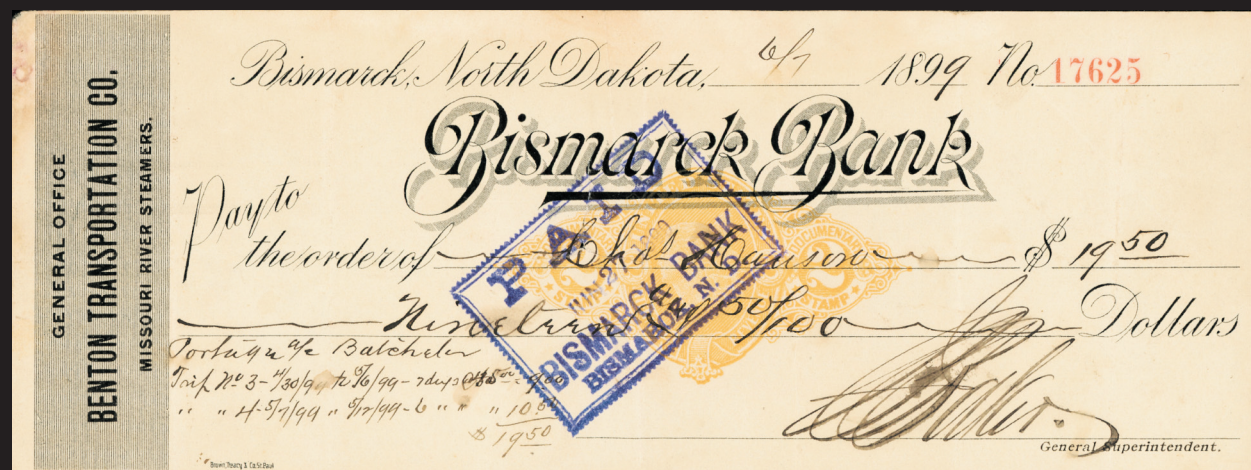 GENERAL OFFICE
BENTON TRANSPORTATION CO.
MISSOURI RIVER STEAMERS.
Bismarck, North Dakota, 6/7 1899 No. 17625
Bismarck Bank
Pay to
the order of Chas Hanson $ 19 50
Nineteen & 50/100 Dollars
PAID
JUN 27 1899
BISMARCK BANK
BISMARCK, N. D.
2 DOCUMENTARY 2
STAMP
a/c Batchelor
Trip No 3 - 4/30/9 to 5/6/99 - 7 days @
" " 4 - 5/7/99 " 5/12/99 - 6 " " " 10.50
$ 19 50
General Superintendent.